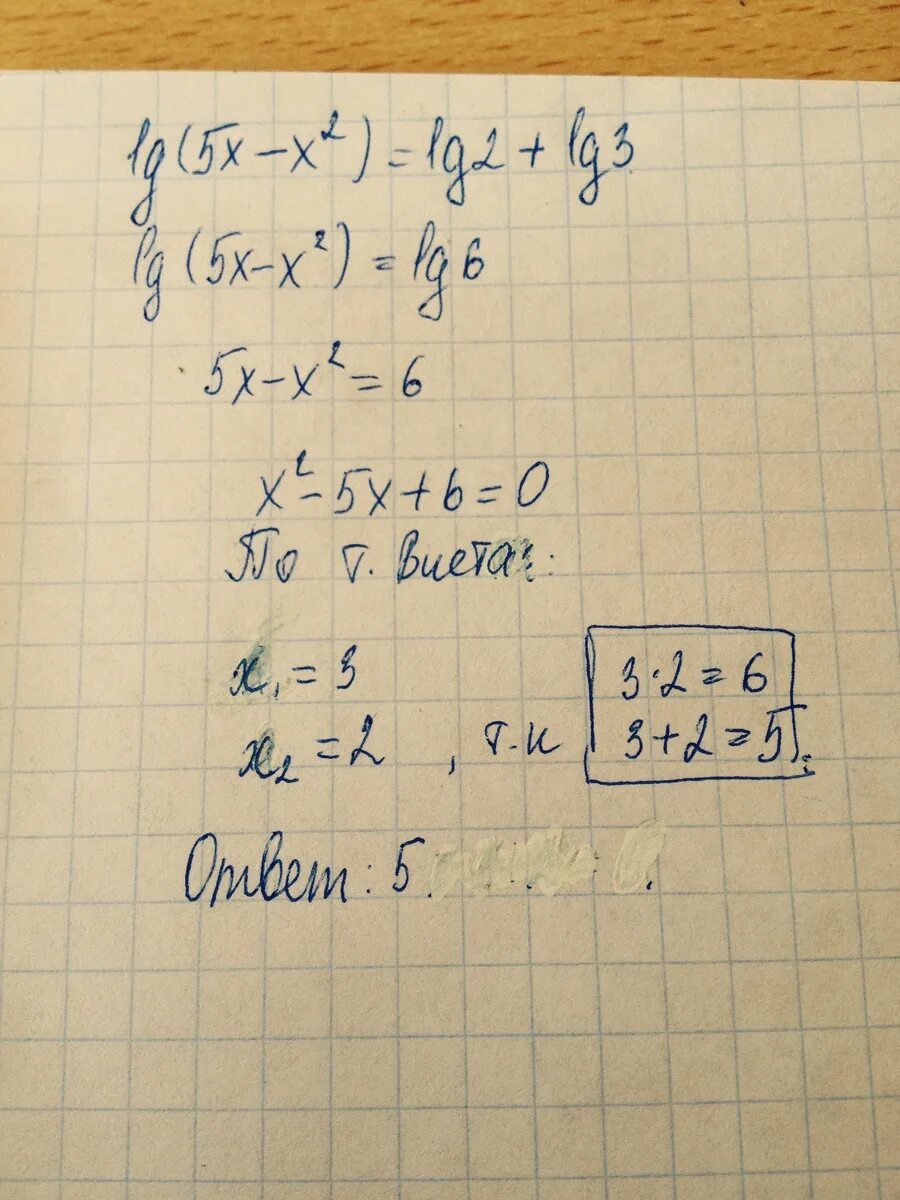 lg(5x-x²)=lg2+lg3
lg(5x-x²)=lg6
5x-x²=6
x²-5x+6=0
По т. Виета:
x₁=3
x₂=2, т.к
3·2=6
3+2=5
Ответ: 5.